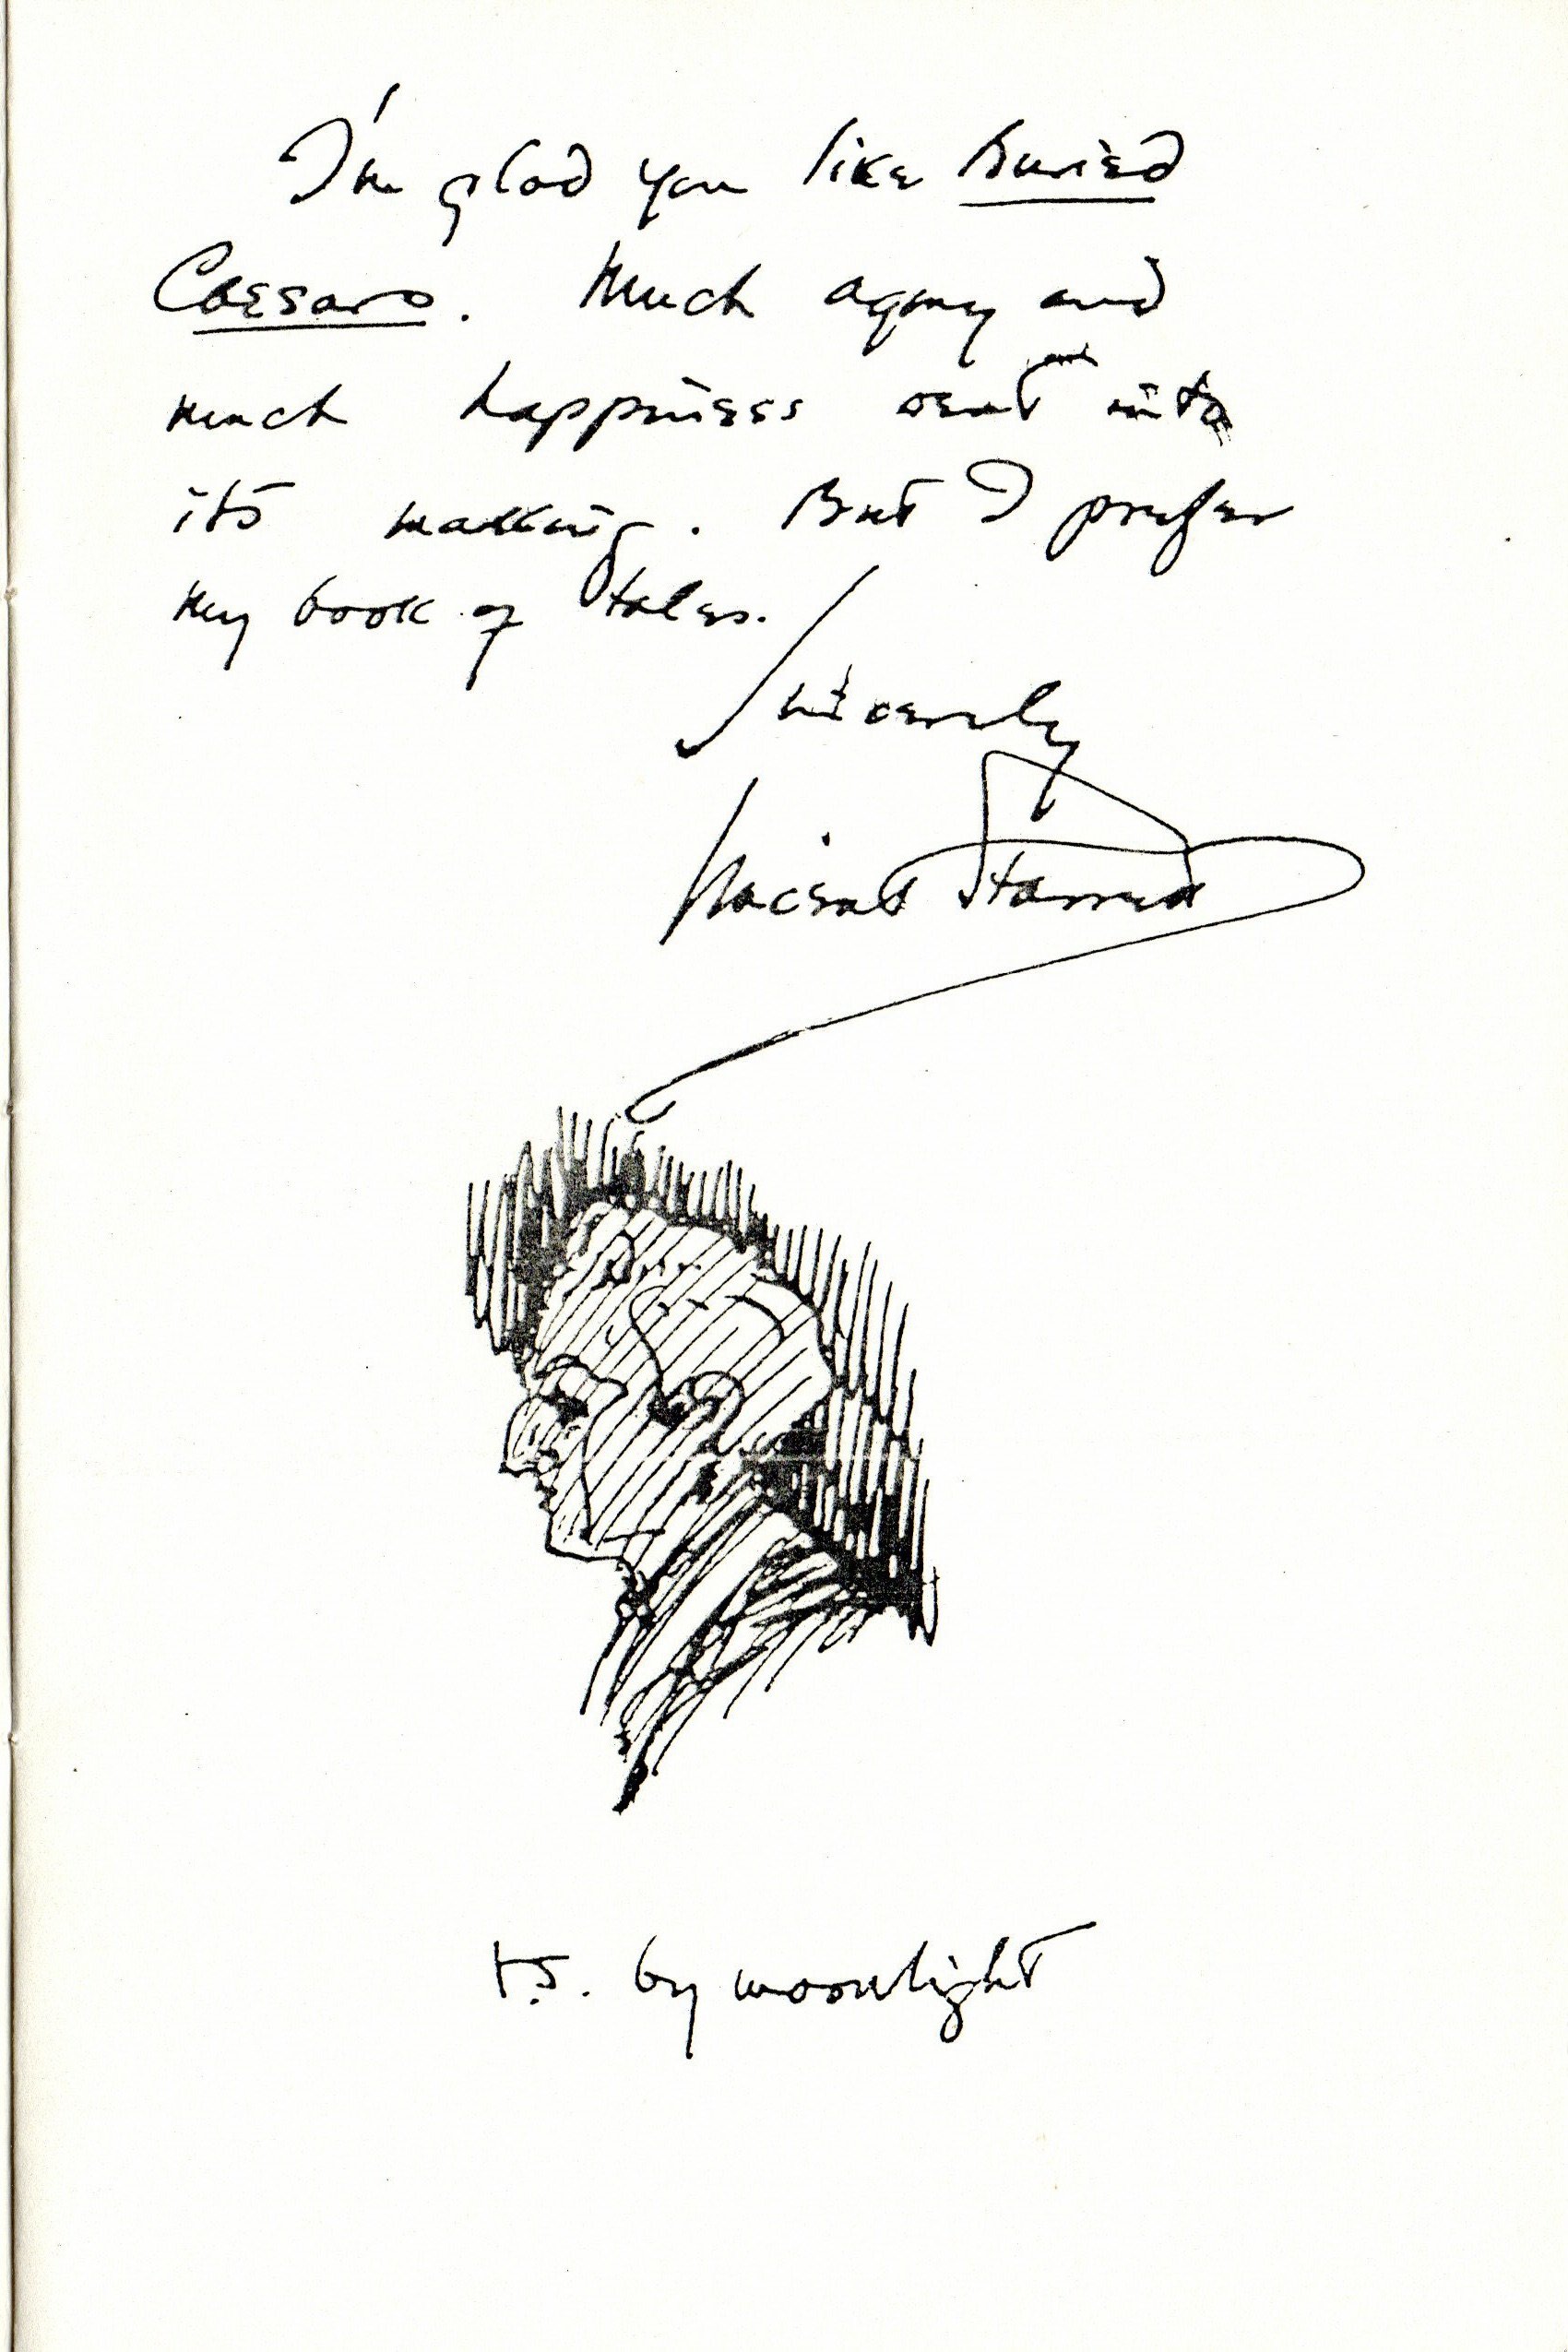 I'm glad you like Buried
Caesars. Much agony and
much happiness went into
its making. But I prefer
my book of tales.
Sincerely
Vincent Starrett
V.S. by moonlight